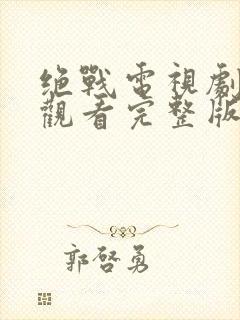 绝戰電視劇
觀看完整版
郭啓勇